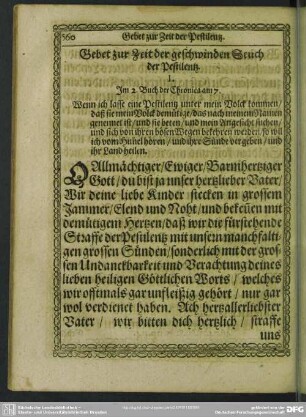 360 Gebet zur Zeit der Pestilentz.
Gebet zur Zeit der geschwinden Seuch
der Pestilentz.
I.
Im 2. Buch der Chronica am 7.
Wenn ich lasse eine Pestilentz unter mein Volck kommen/
daß sie mein Volck demütige/ das nach meinem Namen
genennet ist/ und sie beten/ und mein Angesicht suchen/
und sich von ihren bösen Wegen bekehren werden/ so wil
ich vom Himel hören/ und ihre Sünde vergeben/ und
ihr Land heilen.
O Allmächtiger/ Ewiger/ Barmhertziger
Gott/ du bist ja unser hertzlieber Vater/
Wir deine liebe Kinder stecken in grossem
Jammer/ Elend und Noht/ und bekeñen mit
demütigem Hertzen/ daß wir die fürstehende
Straffe der Pestilentz mit unsern manchfalti-
gen grossen Sünden/ sonderlich mit der gros-
sen Undanckbarkeit und Verachtung deines
lieben heiligen Göttlichen Worts/ welches
wir offtmals gar unfleißig gehört/ nur gar
wol verdienet haben. Ach hertzallerliebster
Vater/ wir bitten dich hertzlich/ straffe
uns